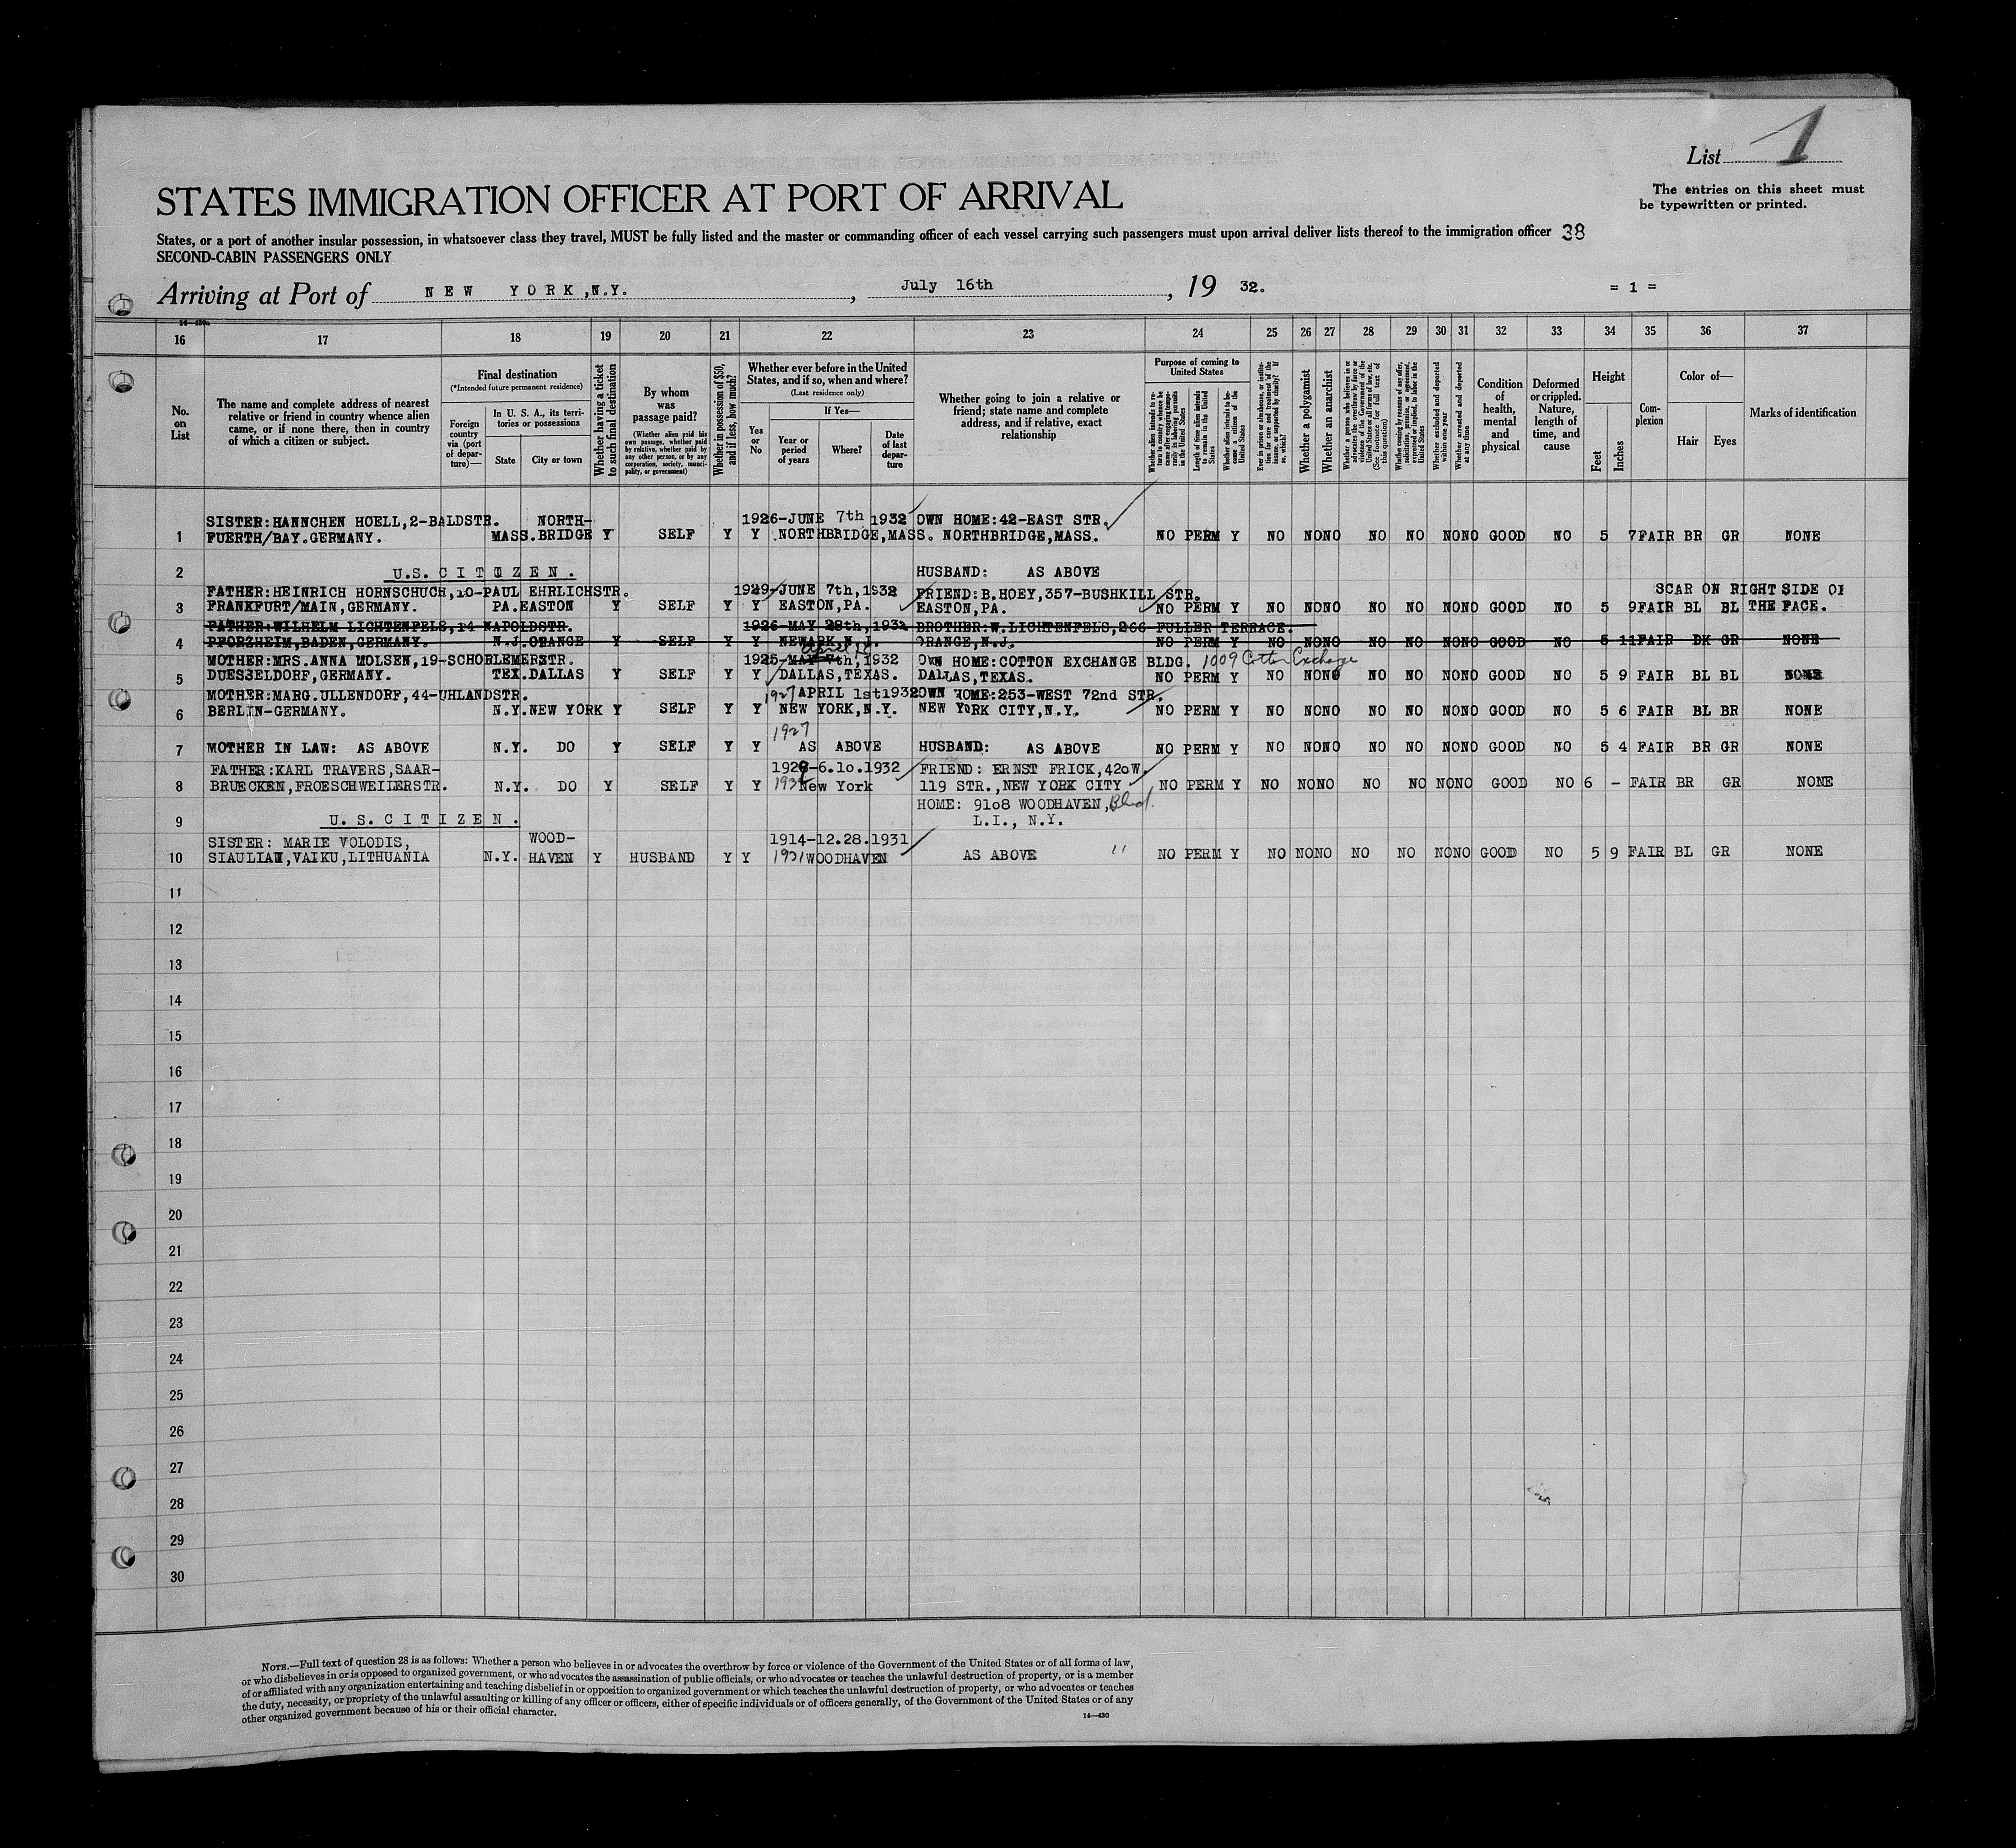 List 1
STATES IMMIGRATION OFFICER AT PORT OF ARRIVAL
The entries on this sheet must
be typewritten or printed.
States, or a port of another insular possession, in whatsoever class they travel, MUST be fully listed and the master or commanding officer of each vessel carrying such passengers must upon arrival deliver lists thereof to the immigration officer 38
SECOND-CABIN PASSENGERS ONLY
Arriving at Port of NEW YORK,N.Y. , July 16th , 19 32. = 1 =
16 17 18 19 20 21 22 23 24 25 26 27 28 29 30 31 32 33 34 35 36 37
No. on List
The name and complete address of nearest relative or friend in country whence alien came, or if none there, then in country of which a citizen or subject.
Final destination
(*Intended future permanent residence)
Foreign country via (port of departure)—
In U. S. A., its territories or possessions
State City or town
Whether having a ticket to such final destination
By whom was passage paid?
(Whether alien paid his own passage, whether paid by relative, whether paid by any other person, or by any corporation, society, municipality, or government)
Whether in possession of $50, and if less, how much?
Whether ever before in the United States, and if so, when and where?
(Last residence only)
If Yes—
Yes or No
Year or period of years
Where?
Date of last departure
Whether going to join a relative or friend; state name and complete address, and if relative, exact relationship
Purpose of coming to United States
Length of time alien intends to remain in the United States
Whether alien intends to become a citizen of the United States
Whether a polygamist
Whether an anarchist
Whether excluded and deported within one year
Whether arrested and deported at any time
Condition of health, mental and physical
Deformed or crippled. Nature, length of time, and cause
Height
Feet Inches
Complexion
Color of—
Hair Eyes
Marks of identification
SISTER:HANNCHEN HOELL,2-BALDSTR. NORTH- 1926-JUNE 7th 1932 OWN HOME:42-EAST STR.
1 FUERTH/BAY.GERMANY. MASS.BRIDGE Y SELF Y Y NORTHBRIDGE,MASS. NORTHBRIDGE,MASS. NO PERM Y NO NONO NO NO NONO GOOD NO 5 7 FAIR BR GR NONE
2 U.S. CITIZEN. HUSBAND: AS ABOVE
FATHER:HEINRICH HORNSCHUCH,10-PAUL EHRLICHSTR. 1929-JUNE 7th,1932 FRIEND:B.HOEY,357-BUSHKILL STR. SCAR ON RIGHT SIDE OF
3 FRANKFURT/MAIN,GERMANY. PA.EASTON Y SELF Y Y EASTON,PA. EASTON,PA. NO PERM Y NO NONO NO NO NONO GOOD NO 5 9 FAIR BL BL THE FACE.
FATHER:WILHELM LICHTENFELS,14-NAPOLDSTR. 1926-MAY 28th,1932 BROTHER:W.LICHTENFELS,266 FULLER TERRACE.
4 PFORZHEIM,BADEN,GERMANY. N.J.ORANGE Y SELF Y Y NEWARK,N.J. ORANGE,N.J. NO PERM Y NO NONO NO NO NONO GOOD NO 5 11 FAIR DK GR NONE
MOTHER:MRS.ANNA MOLSEN,19-SCHORLEMERSTR. 1925-MAY 7th,1932 OWN HOME:COTTON EXCHANGE BLDG. 1009 Cotton Exchange
5 DUESSELDORF,GERMANY. TEX.DALLAS Y SELF Y Y DALLAS,TEXAS. DALLAS,TEXAS. NO PERM Y NO NONO NO NO NONO GOOD NO 5 9 FAIR BL BL NONE
MOTHER:MARG.ULLENDORF,44-UHLANDSTR. 1927 APRIL 1st 1932 OWN HOME:253-WEST 72nd STR.
6 BERLIN-GERMANY. N.Y.NEW YORK Y SELF Y Y NEW YORK,N.Y. NEW YORK CITY,N.Y. NO PERM Y NO NONO NO NO NONO GOOD NO 5 6 FAIR BL BR NONE
1927
7 MOTHER IN LAW: AS ABOVE N.Y. DO Y SELF Y Y AS ABOVE HUSBAND: AS ABOVE NO PERM Y NO NONO NO NO NONO GOOD NO 5 4 FAIR BR GR NONE
FATHER:KARL TRAVERS,SAAR- 1929-6.10.1932 FRIEND: ERNST FRICK,420W.
8 BRUECKEN,FROESCHWEILERSTR. N.Y. DO Y SELF Y Y 1932 New York 119 STR.,NEW YORK CITY NO PERM Y NO NONO NO NO NONO GOOD NO 6 - FAIR BR GR NONE
HOME: 9108 WOODHAVEN, Blvd.
9 U.S.CITIZEN. L.I., N.Y.
SISTER: MARIE VOLODIS, WOOD- 1914-12.28.1931
10 SIAULIAU,VAIKU,LITHUANIA N.Y. HAVEN Y HUSBAND Y Y 1931 WOODHAVEN AS ABOVE " NO PERM Y NO NONO NO NO NONO GOOD NO 5 9 FAIR BL GR NONE
11
12
13
14
15
16
17
18
19
20
21
22
23
24
25
26
27
28
29
30
NOTE.—Full text of question 28 is as follows: Whether a person who believes in or advocates the overthrow by force or violence of the Government of the United States or of all forms of law,
or who disbelieves in or is opposed to organized government, or who advocates the assassination of public officials, or who advocates or teaches the unlawful destruction of property, or is a member
of or affiliated with any organization entertaining and teaching disbelief in or opposition to organized government or which teaches the unlawful destruction of property, or who advocates or teaches
the duty, necessity, or propriety of the unlawful assaulting or killing of any officer or officers, either of specific individuals or of officers generally, of the Government of the United States or of any
other organized government because of his or their official character.
14—430